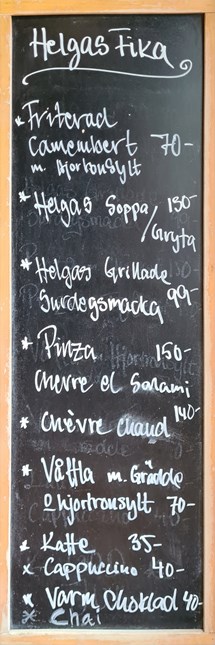 Helgas Fika
* Friterad
Camembert 70-
m. Hjortronsylt
* Helgas Soppa/ 130-
/Gryta
* Helgas Grillade
Surdegsmacka 99-
* Pinza 150-
Chevre el Salami
* Chèvre chaud 140-
* Våffla m. Grädde
o hjortronsylt 70-
* Kaffe 35-
x Cappuccino 40-
* Varm Choklad 40-
* Chai